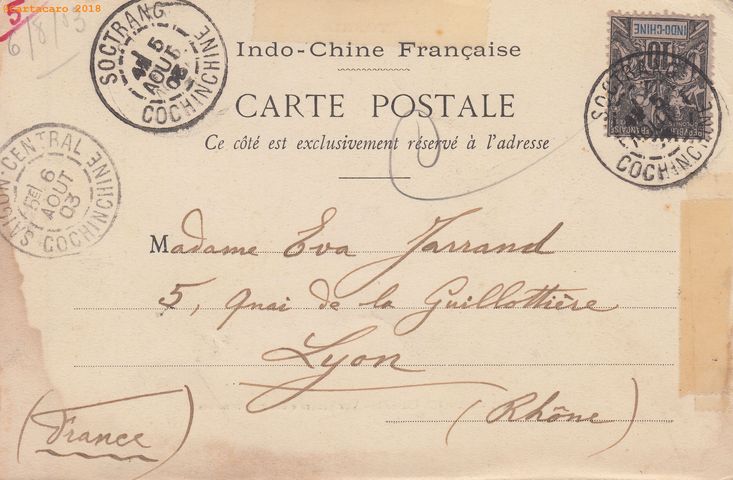 ©cartacaro 2018
6/8/03
SOCTRANG
5
AOUT
03
COCHINCHINE
Indo-Chine Française
CARTE POSTALE
Ce côté est exclusivement réservé à l'adresse
INDO-CHINE
10
COCHINCHINE
SAIGON-CENTRAL
6
AOUT
03
COCHINCHINE
Madame Eva Jarrand
5, Quai de la Guillottière
Lyon
(Rhône)
(France)